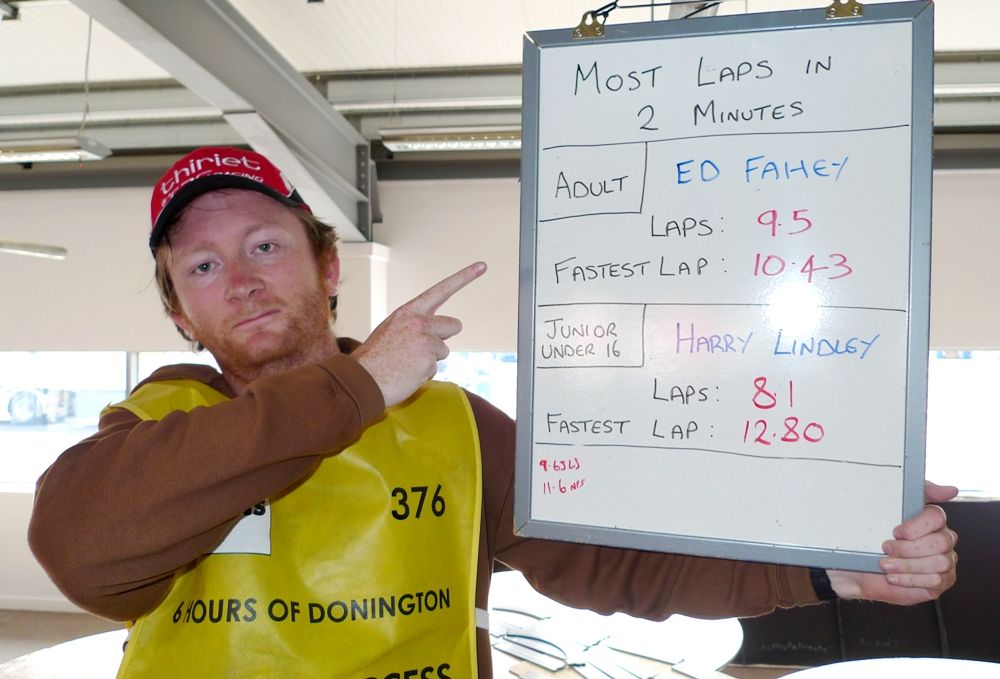 MOST LAPS IN
2 MINUTES
ADULT
ED FAHEY
LAPS: 9.5
FASTEST LAP: 10.43
JUNIOR
UNDER 16
HARRY LINDLEY
LAPS: 8.1
FASTEST LAP: 12.80
11.6
thiriet
376
6 HOURS OF DONINGTON